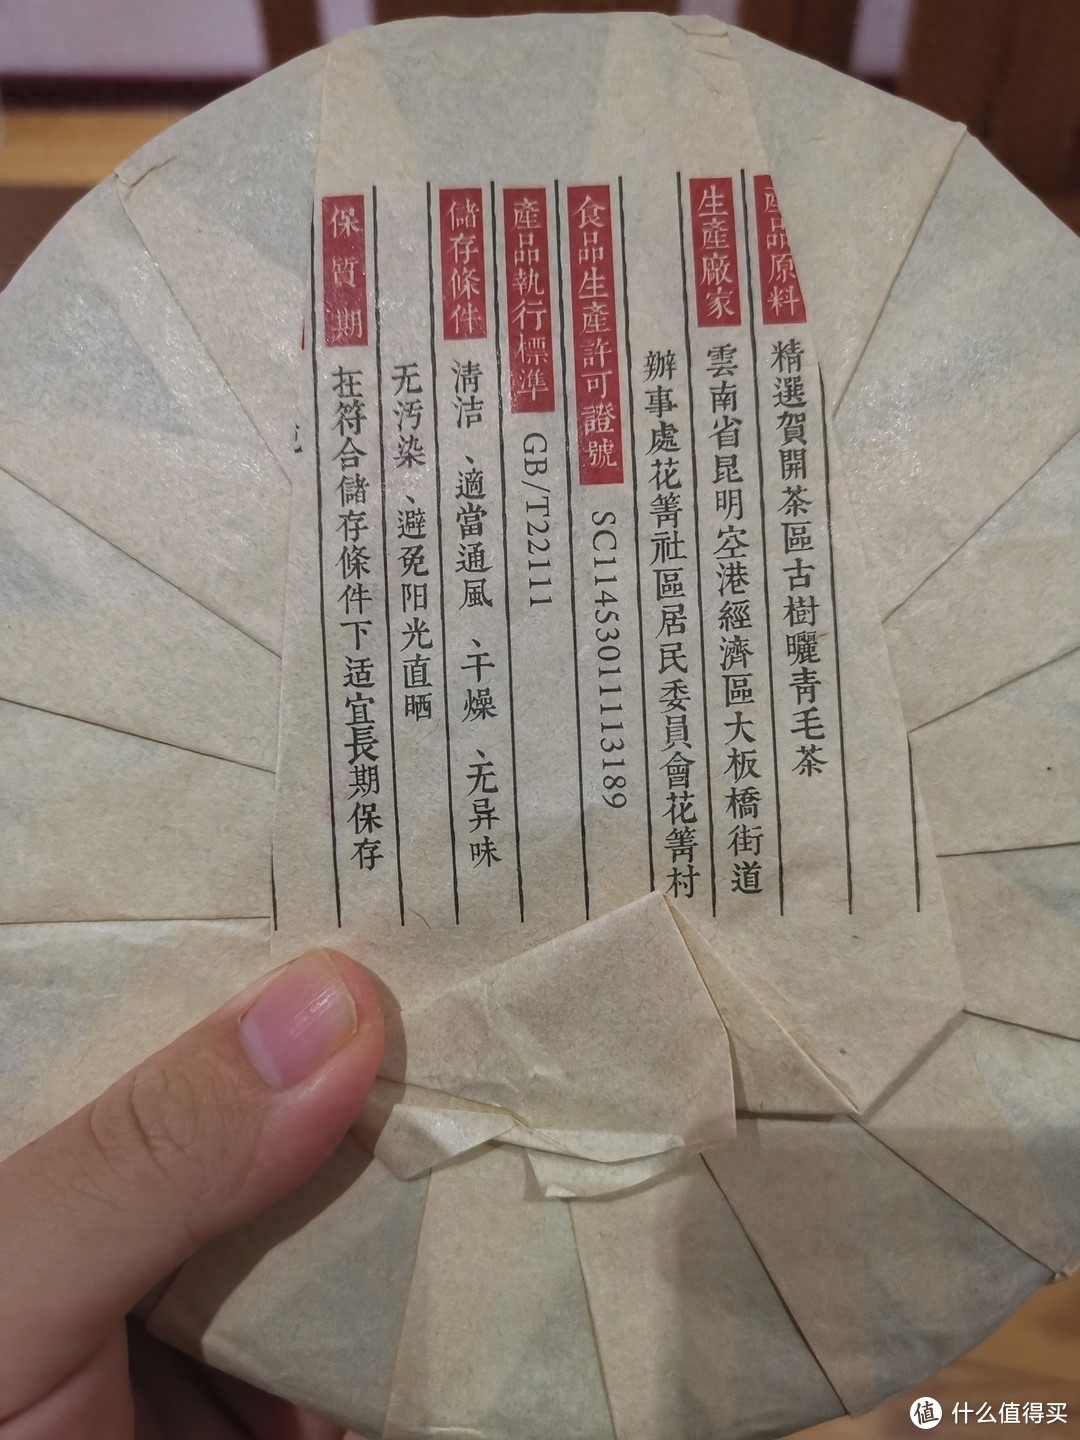 產品原料 精選賀開茶區古樹曬青毛茶
生產廠家 雲南省昆明空港經濟區大板橋街道
辦事處花箐社區居民委員會花箐村
食品生產許可證號 SC11453011113189
產品執行標準 GB/T22111
儲存條件 清洁、適當通風、干燥、无异味
无污染、避免阳光直晒
保質期 在符合儲存條件下适宜長期保存
值 什么值得买